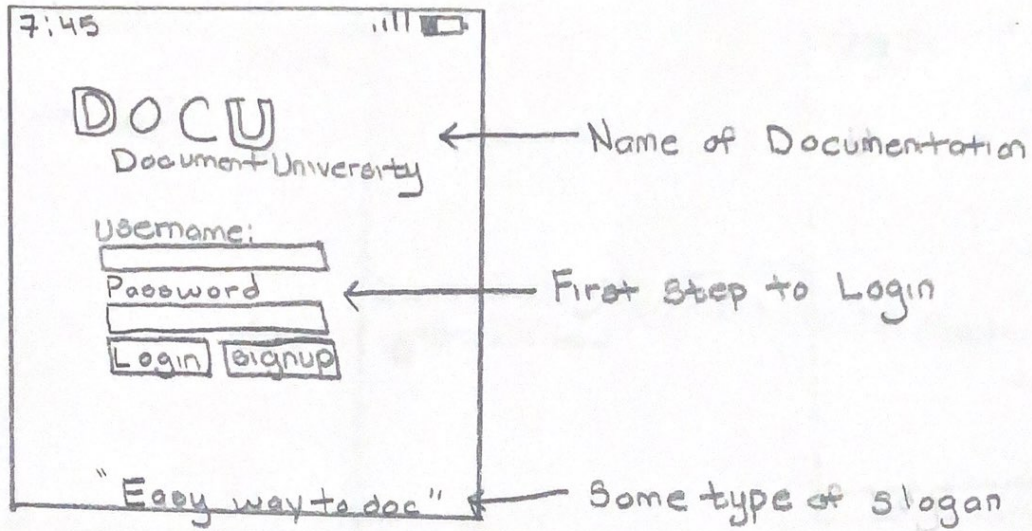 7:45
DOCU
Document University
Username:
Password
Login Signup
"Easy way to doc"
Name of Documentation
First step to Login
Some type of slogan